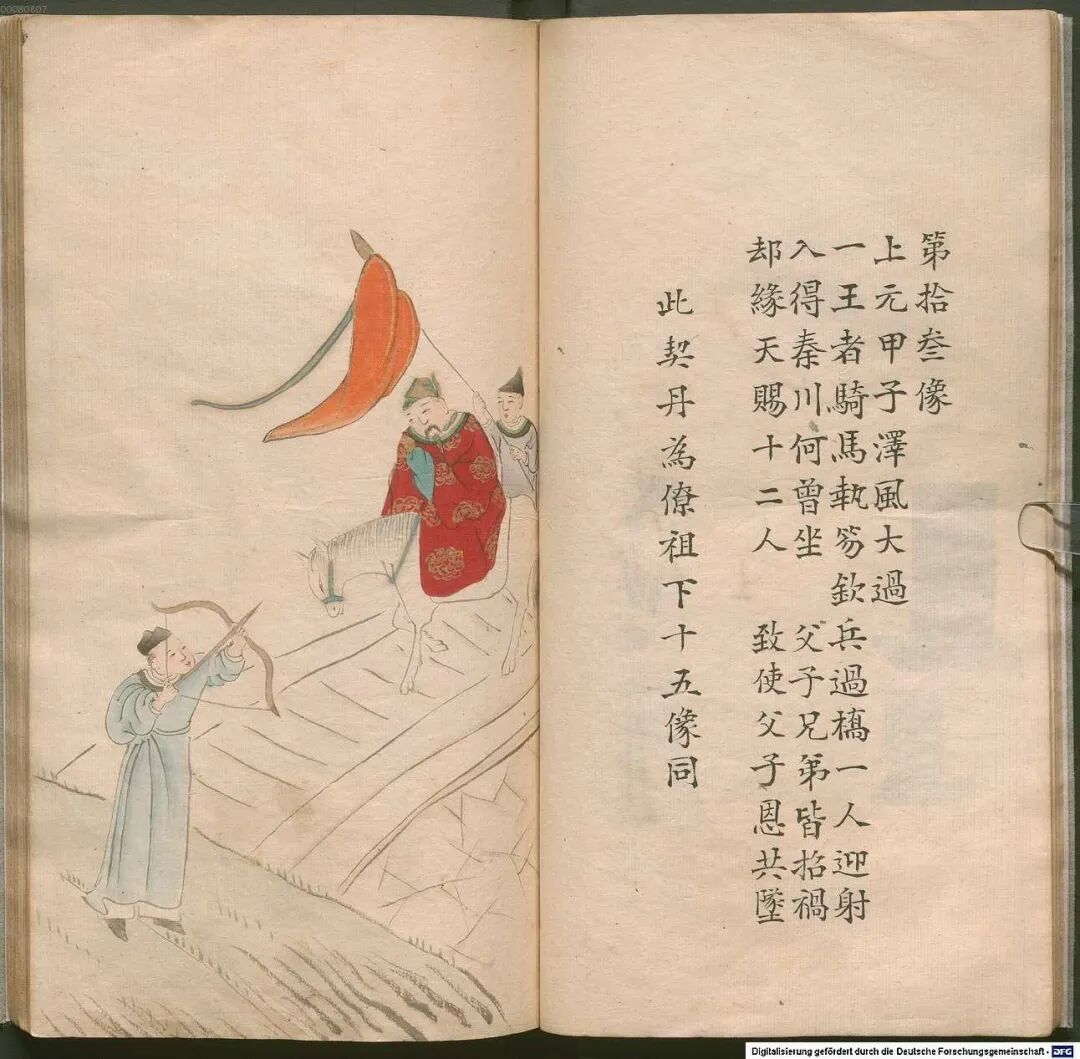 00080807
第拾叁像
上元甲子澤風大過
一王者騎馬執笏欽兵過橋一人迎射
入得秦川何曾坐 父子兄弟皆招禍
却緣天賜十二人 致使父子恩共墜
此契丹為僚祖下十五像同
Digitalisierung gefördert durch die Deutsche Forschungsgemeinschaft - DFG